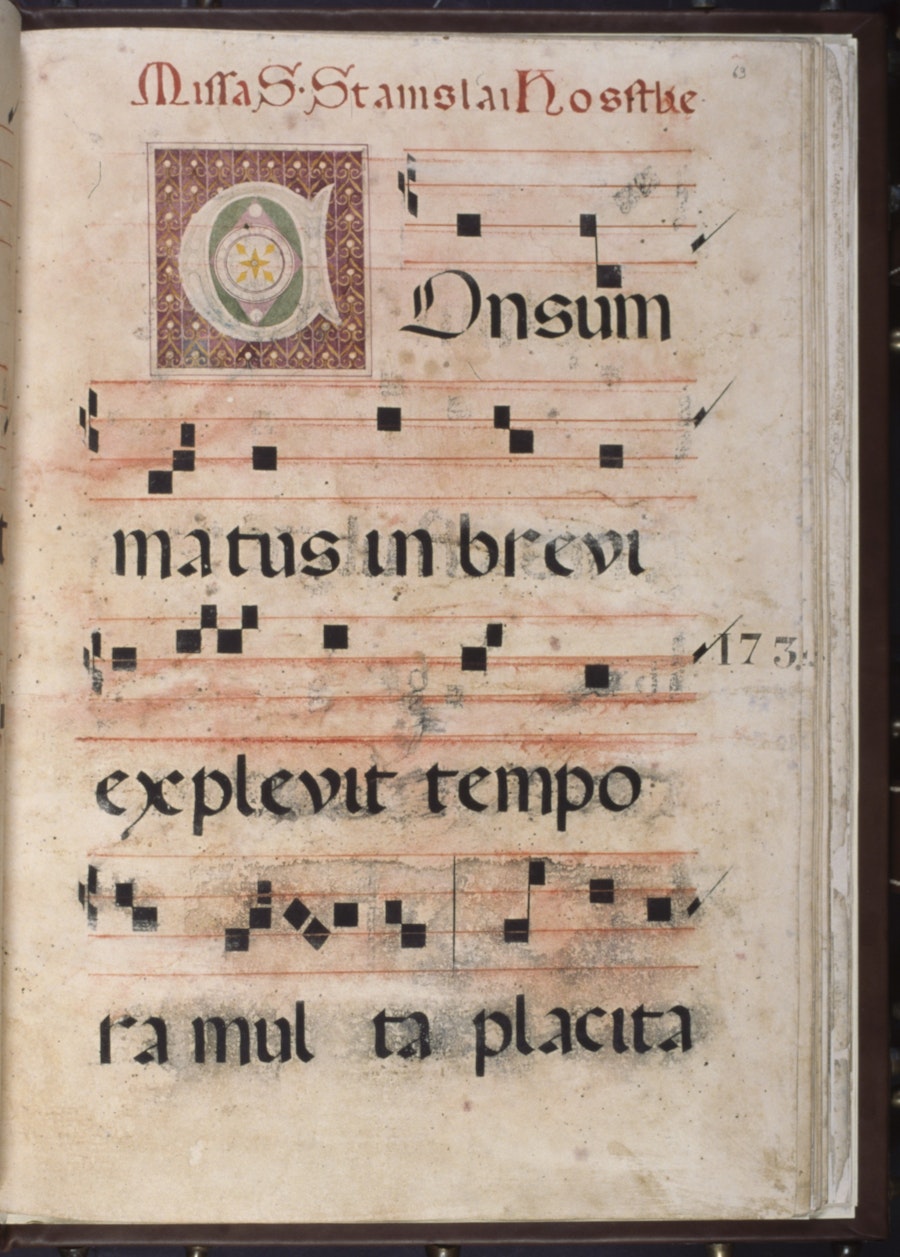 Missa S. Stanislai Hostke 63
COnsum
matus in brevi
explevit tempo
173.
ra mul ta placita